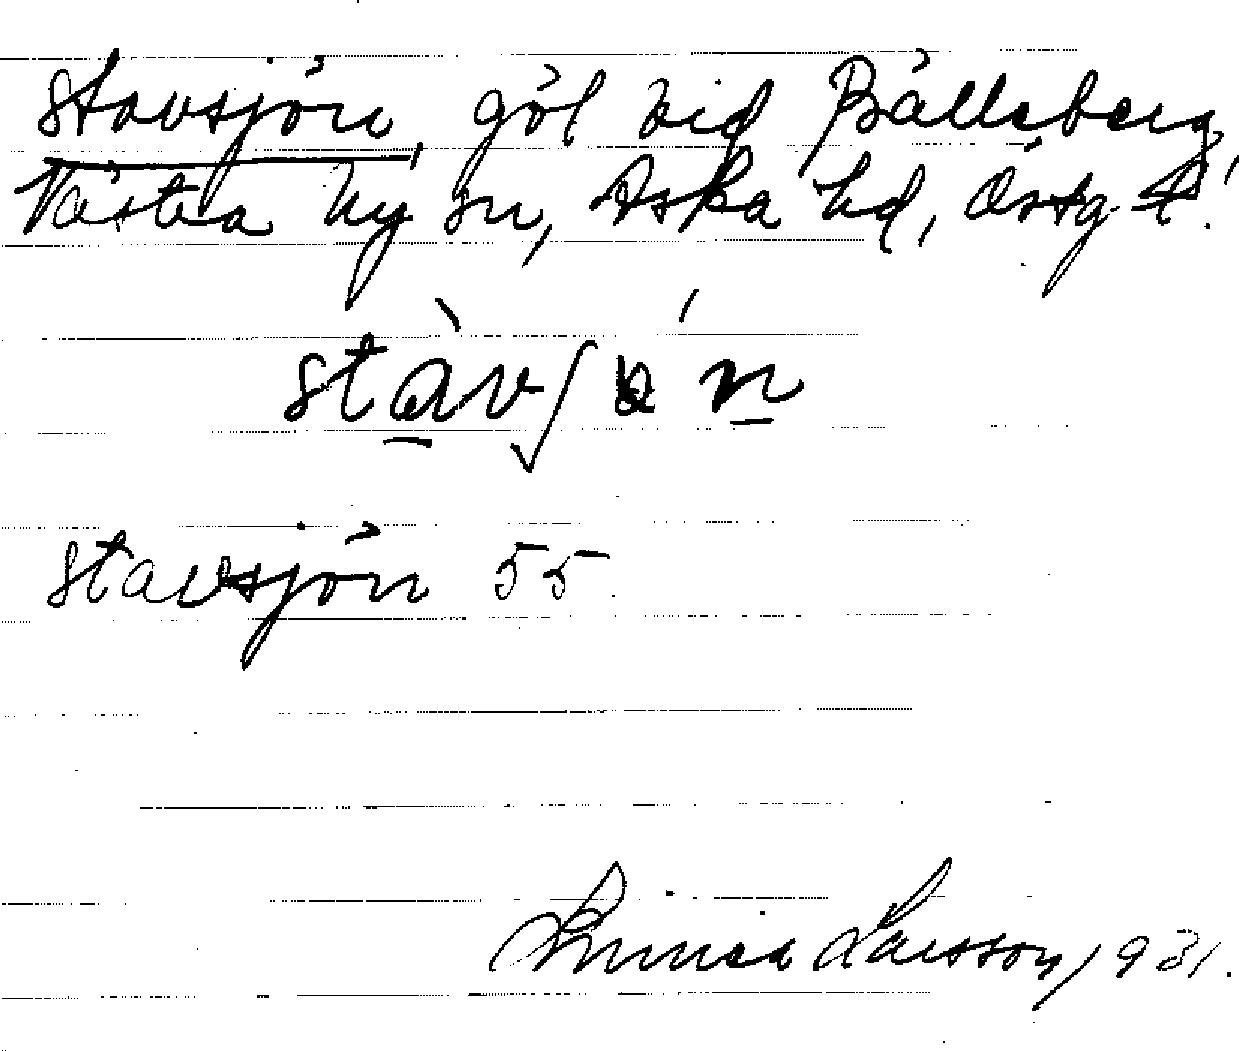 Stavsjön, göl vid Bålleberg,
Västra Ny sn, Aska hd, Östg. l.
Stavsjön 55
Linnea Larsson, 1931.